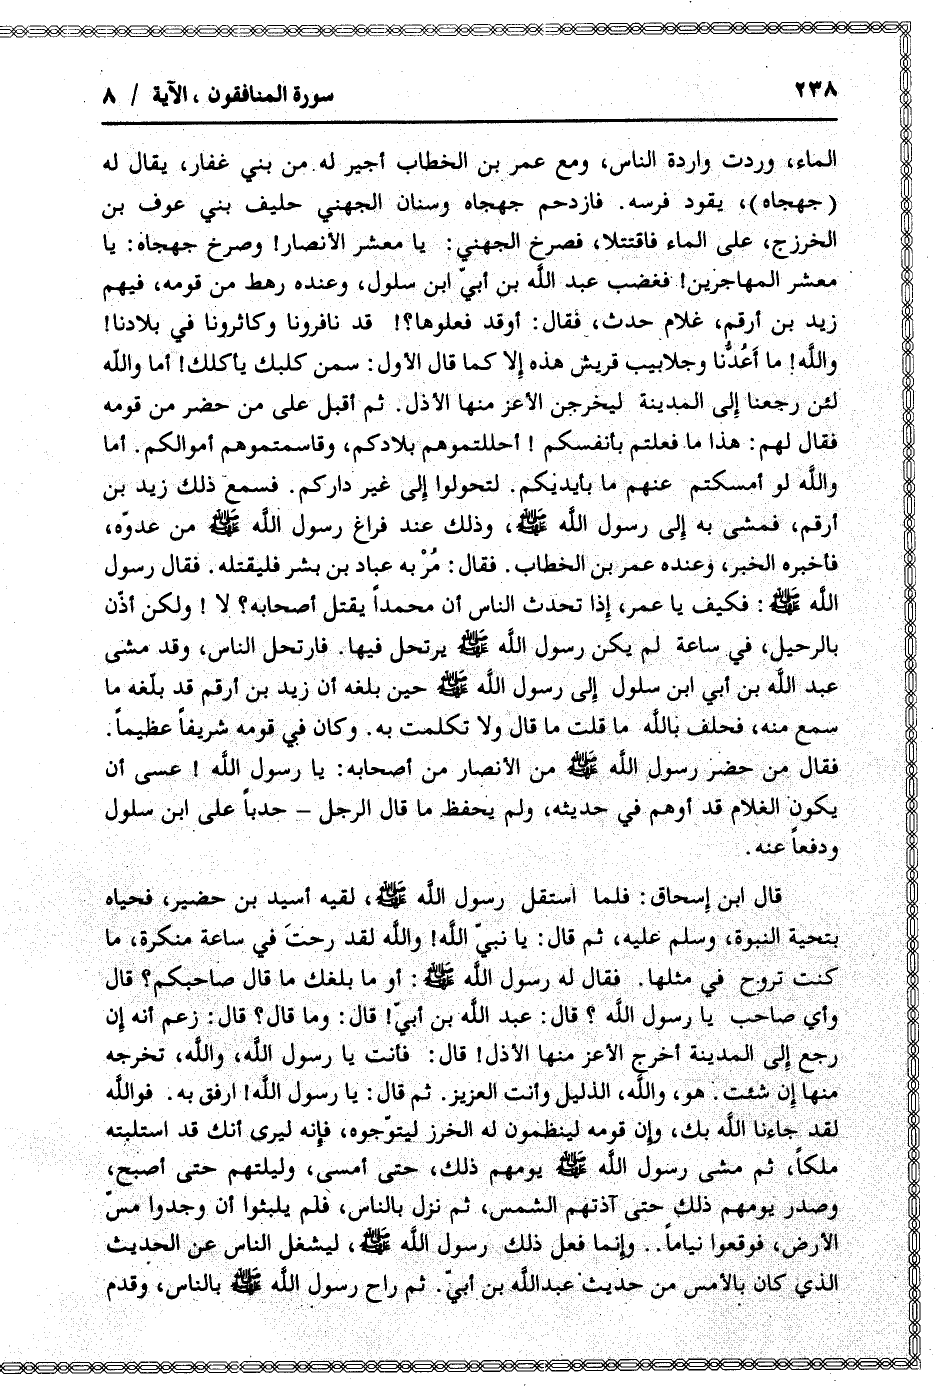 ٢٣٨
سورة المنافقون ، الآية / ٨
الماء، وردت واردة الناس، ومع عمر بن الخطاب أجير له من بني غفار، يقال له
(جهجاه)، يقود فرسه. فازدحم جهجاه وسنان الجهني حليف بني عوف بن
الخزرج، على الماء فاقتتلا، فصرخ الجهني: يا معشر الأنصار! وصرخ جهجاه: يا
معشر المهاجرين! فغضب عبد اللَّه بن أبيّ ابن سلول، وعنده رهط من قومه، فيهم
زيد بن أرقم، غلام حدث، فقال: أوقد فعلوها؟! قد نافرونا وكاثرونا في بلادنا!
واللَّه! ما أَعُدُّنا وجلابيب قريش هذه إلا كما قال الأول: سمن كلبك يأكلك! أما واللَّه
لئن رجعنا إلى المدينة ليخرجن الأعز منها الأذل. ثم أقبل على من حضر من قومه
فقال لهم: هذا ما فعلتم بأنفسكم ! أحللتموهم بلادكم، وقاسمتموهم أموالكم. أما
واللَّه لو أمسكتم عنهم ما بأيديكم. لتحولوا إلى غير داركم. فسمع ذلك زيد بن
أرقم، فمشى به إلى رسول اللَّه ﷺ، وذلك عند فراغ رسول اللَّه ﷺ من عدوّه،
فأخبره الخبر، وعنده عمر بن الخطاب. فقال: مُرْ به عباد بن بشر فليقتله. فقال رسول
اللَّه ﷺ: فكيف يا عمر، إذا تحدث الناس أن محمداً يقتل أصحابه؟ لا ! ولكن أذّن
بالرحيل، في ساعة لم يكن رسول اللَّه ﷺ يرتحل فيها. فارتحل الناس، وقد مشى
عبد اللَّه بن أبي ابن سلول إلى رسول اللَّه ﷺ حين بلغه أن زيد بن أرقم قد بلّغه ما
سمع منه، فحلف باللَّه ما قلت ما قال ولا تكلمت به. وكان في قومه شريفاً عظيماً.
فقال من حضر رسول اللَّه ﷺ من الأنصار من أصحابه: يا رسول اللَّه ! عسى أن
يكون الغلام قد أوهم في حديثه، ولم يحفظ ما قال الرجل – حدباً على ابن سلول
ودفعاً عنه.
قال ابن إسحاق: فلما استقل رسول اللَّه ﷺ، لقيه أسيد بن حضير، فحياه
بتحية النبوة، وسلم عليه، ثم قال: يا نبيّ اللَّه! واللَّه لقد رحتَ في ساعة منكرة، ما
كنت تروح في مثلها. فقال له رسول اللَّه ﷺ: أو ما بلغك ما قال صاحبكم؟ قال
وأي صاحب يا رسول اللَّه ؟ قال: عبد اللَّه بن أبيّ! قال: وما قال؟ قال: زعم أنه إن
رجع إلى المدينة أخرج الأعز منها الأذل! قال: فأنت يا رسول اللَّه، واللَّه، تخرجه
منها إن شئت. هو، واللَّه، الذليل وأنت العزيز. ثم قال: يا رسول اللَّه! ارفق به. فواللَّه
لقد جاءنا اللَّه بك، وإن قومه لينظمون له الخرز ليتوّجوه، فإنه ليرى أنك قد استلبته
ملكاً، ثم مشى رسول اللَّه ﷺ يومهم ذلك، حتى أمسى، وليلتهم حتى أصبح،
وصدر يومهم ذلك حتى آذتهم الشمس، ثم نزل بالناس، فلم يلبثوا أن وجدوا مسّ
الأرض، فوقعوا نياماً.. وإنما فعل ذلك رسول اللَّه ﷺ، ليشغل الناس عن الحديث
الذي كان بالأمس من حديث عبداللَّه بن أبيّ. ثم راح رسول اللَّه ﷺ بالناس، وقدم